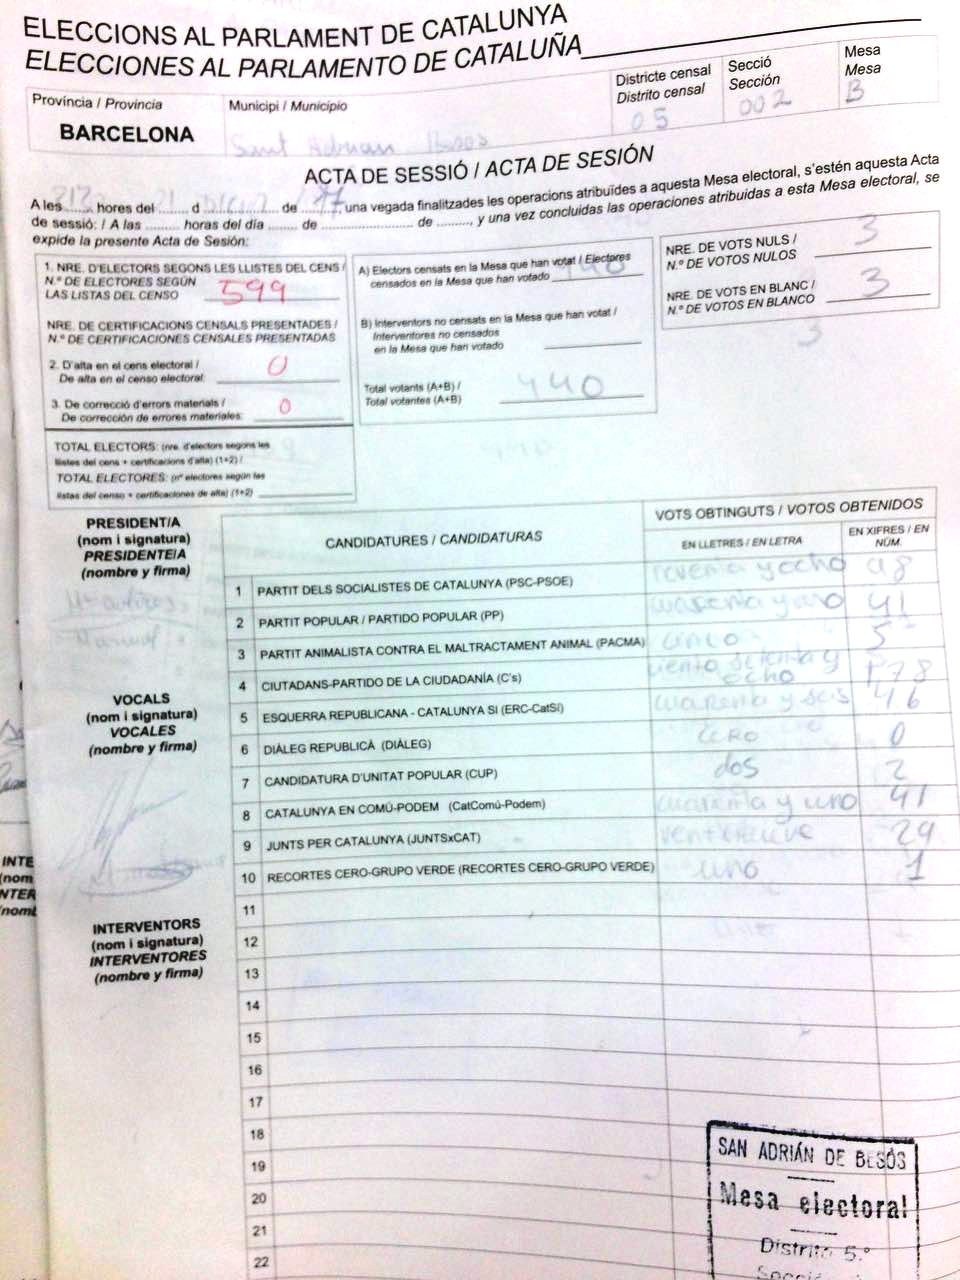 ELECCIONS AL PARLAMENT DE CATALUNYA
ELECCIONES AL PARLAMENTO DE CATALUÑA
Província / Provincia
BARCELONA
Municipi / Municipio
Sant Adrian Besos
Districte censal
Distrito censal
05
Secció
Sección
002
Mesa
Mesa
B
ACTA DE SESSIÓ / ACTA DE SESIÓN
A les ........ hores del 21 d ........ de 17, una vegada finalitzades les operacions atribuïdes a aquesta Mesa electoral, s'estén aquesta Acta
de sessió: / A las ......... horas del día ....... de ........................ de ........., y una vez concluidas las operaciones atribuidas a esta Mesa electoral, se
expide la presente Acta de Sesión:
1. NRE. D'ELECTORS SEGONS LES LLISTES DEL CENS /
N.º DE ELECTORES SEGÚN
LAS LISTAS DEL CENSO 599
NRE. DE CERTIFICACIONS CENSALS PRESENTADES /
N.º DE CERTIFICACIONES CENSALES PRESENTADAS
2. D'alta en el cens electoral /
De alta en el censo electoral: 0
3. De correcció d'errors materials /
De corrección de errores materiales: 0
TOTAL ELECTORS: (nre. d'electors segons les
llistes del cens + certificacions d'alta) (1+2) /
TOTAL ELECTORES: (nº electores según las
listas del censo + certificaciones de alta) (1+2)
A) Electors censats en la Mesa que han votat / Electores
censados en la Mesa que han votado 440
B) Interventors no censats en la Mesa que han votat /
Interventores no censados
en la Mesa que han votado
Total votants (A+B) /
Total votantes (A+B) 440
NRE. DE VOTS NULS /
N.º DE VOTOS NULOS 3
NRE. DE VOTS EN BLANC /
N.º DE VOTOS EN BLANCO 3
PRESIDENT/A
(nom i signatura)
PRESIDENTE/A
(nombre y firma)
VOCALS
(nom i signatura)
VOCALES
(nombre y firma)
INTERVENTORS
(nom i signatura)
INTERVENTORES
(nombre y firma)
CANDIDATURES / CANDIDATURAS
VOTS OBTINGUTS / VOTOS OBTENIDOS
EN LLETRES / EN LETRA
EN XIFRES / EN
NÚM.
1 PARTIT DELS SOCIALISTES DE CATALUNYA (PSC-PSOE) noventa y ocho 98
2 PARTIT POPULAR / PARTIDO POPULAR (PP) cuarenta y uno 41
3 PARTIT ANIMALISTA CONTRA EL MALTRACTAMENT ANIMAL (PACMA) cinco 5
4 CIUTADANS-PARTIDO DE LA CIUDADANÍA (C's) ciento setenta y ocho 178
5 ESQUERRA REPUBLICANA - CATALUNYA SI (ERC-CatSí) cuarenta y seis 46
6 DIÀLEG REPUBLICÀ (DIÀLEG) cero 0
7 CANDIDATURA D'UNITAT POPULAR (CUP) dos 2
8 CATALUNYA EN COMÚ-PODEM (CatComú-Podem) cuarenta y uno 41
9 JUNTS PER CATALUNYA (JUNTSxCAT) 29
10 RECORTES CERO-GRUPO VERDE (RECORTES CERO-GRUPO VERDE) uno 1
11
12
13
14
15
16
17
18
19
20
21
22
SAN ADRIÁN DE BESÓS
Mesa electoral
Distrito 5.º